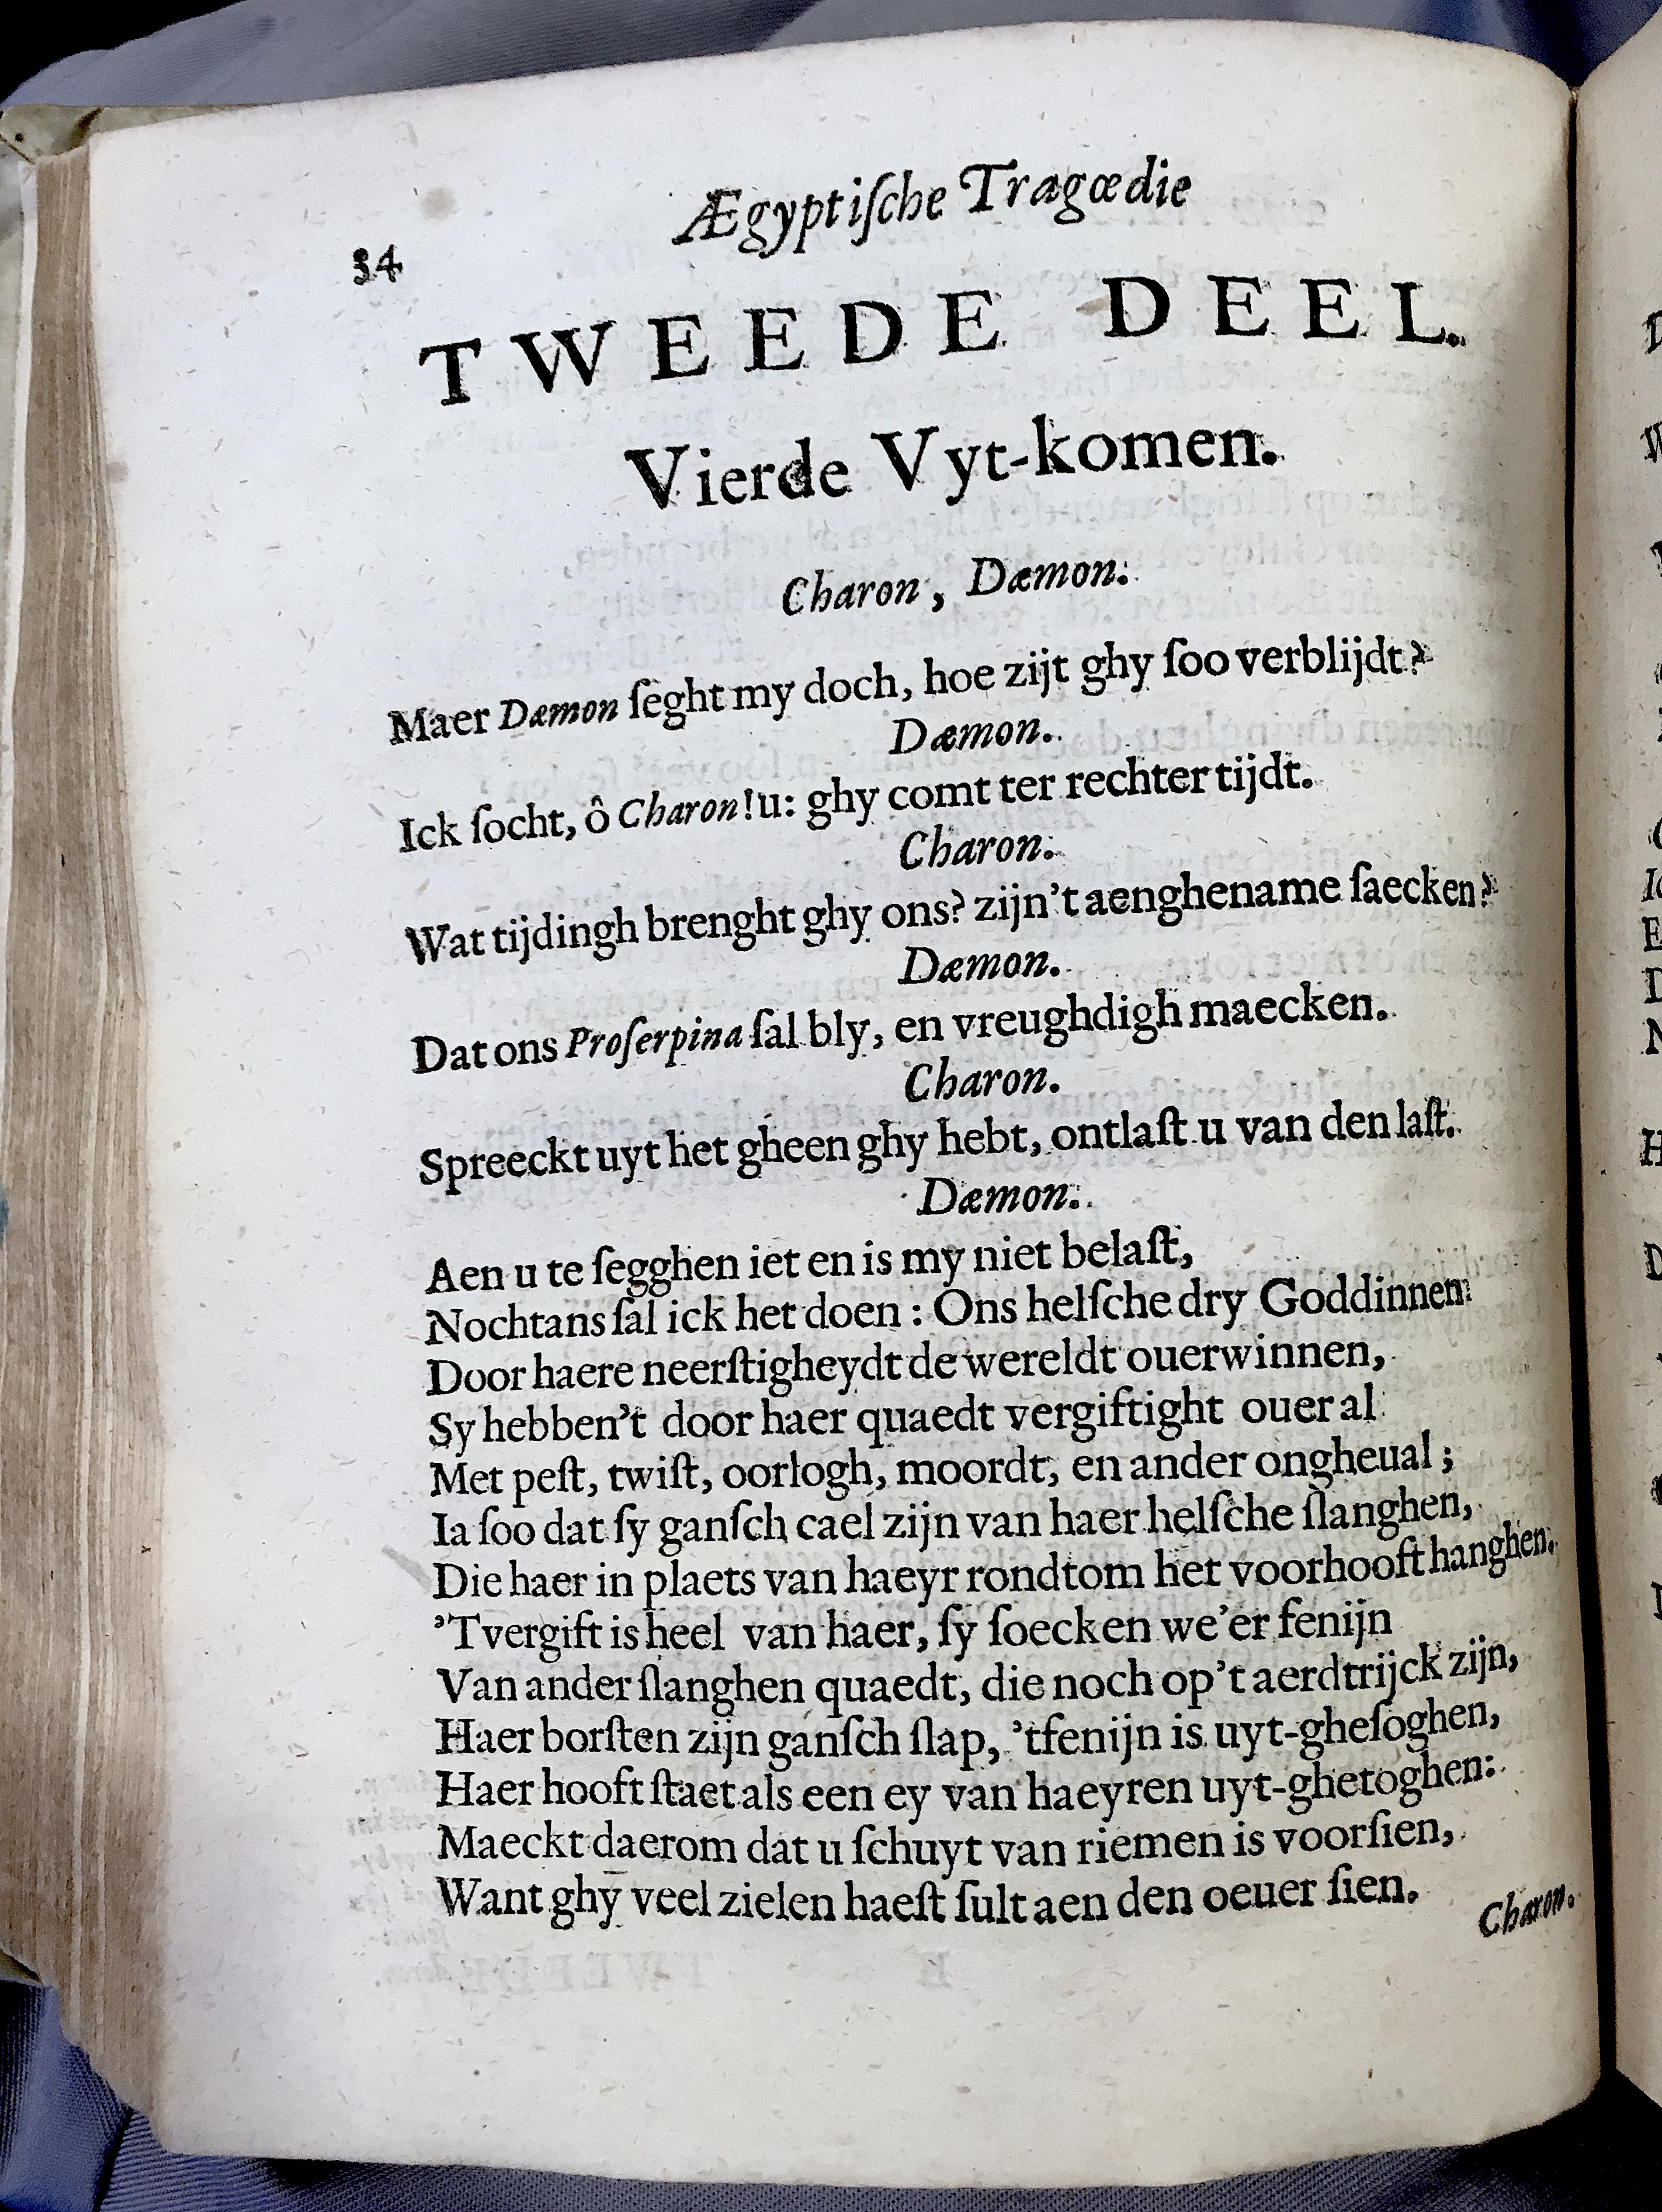 Ægyptiſche Tragœdie
34
TWEEDE DEEL.
Vierde Vyt-komen.
Charon, Dæmon.
Maer Dæmon ſeght my doch, hoe zijt ghy ſoo verblijdt?
Dæmon.
Ick ſocht, ô Charon! u: ghy comt ter rechter tijdt.
Charon.
Wat tijdingh brenght ghy ons? zijn't aenghename ſaecken?
Dæmon.
Dat ons Proſerpina ſal bly, en vreughdigh maecken.
Charon.
Spreeckt uyt het gheen ghy hebt, ontlaſt u van den laſt.
Dæmon.
Aen u te ſegghen iet en is my niet belaſt,
Nochtans ſal ick het doen: Ons helſche dry Goddinnen
Door haere neerſtigheydt de wereldt ouerwinnen,
Sy hebben't door haer quaedt vergiftight oueral
Met peſt, twiſt, oorlogh, moordt, en ander ongheual;
Ia ſoo dat ſy ganſch cael zijn van haer helſche ſlanghen,
Die haer in plaets van haeyr rondtom het voorhooft hanghen.
'Tvergift is heel van haer, ſy ſoecken we'er fenijn
Van ander ſlanghen quaedt, die noch op't aerdtrijck zijn,
Haer borſten zijn ganſch ſlap, 'tfenijn is uyt-gheſoghen,
Haer hooft ſtaet als een ey van haeyren uyt-ghetoghen:
Maeckt daerom dat u ſchuyt van riemen is voorſien,
Want ghy veel zielen haeſt ſult aen den oeuer ſien.
Charon.